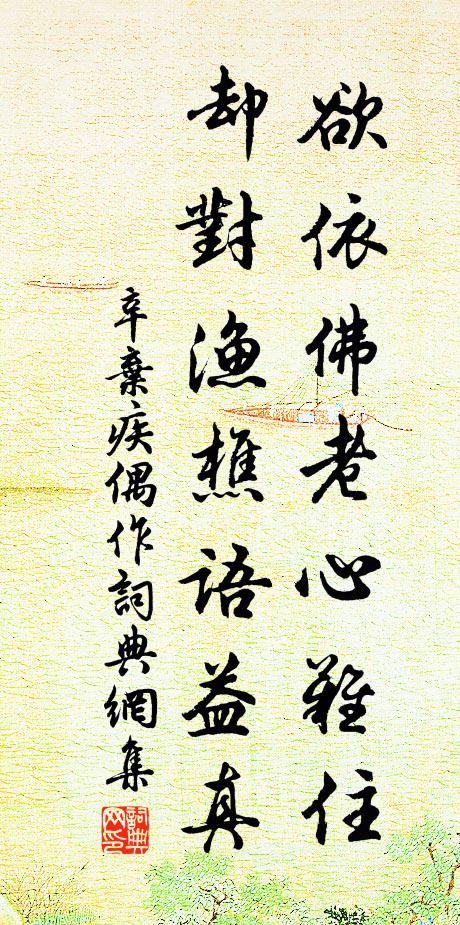 欲依佛老心難住
却對漁樵語益真
辛棄疾偶作詞典網集
詞典网印